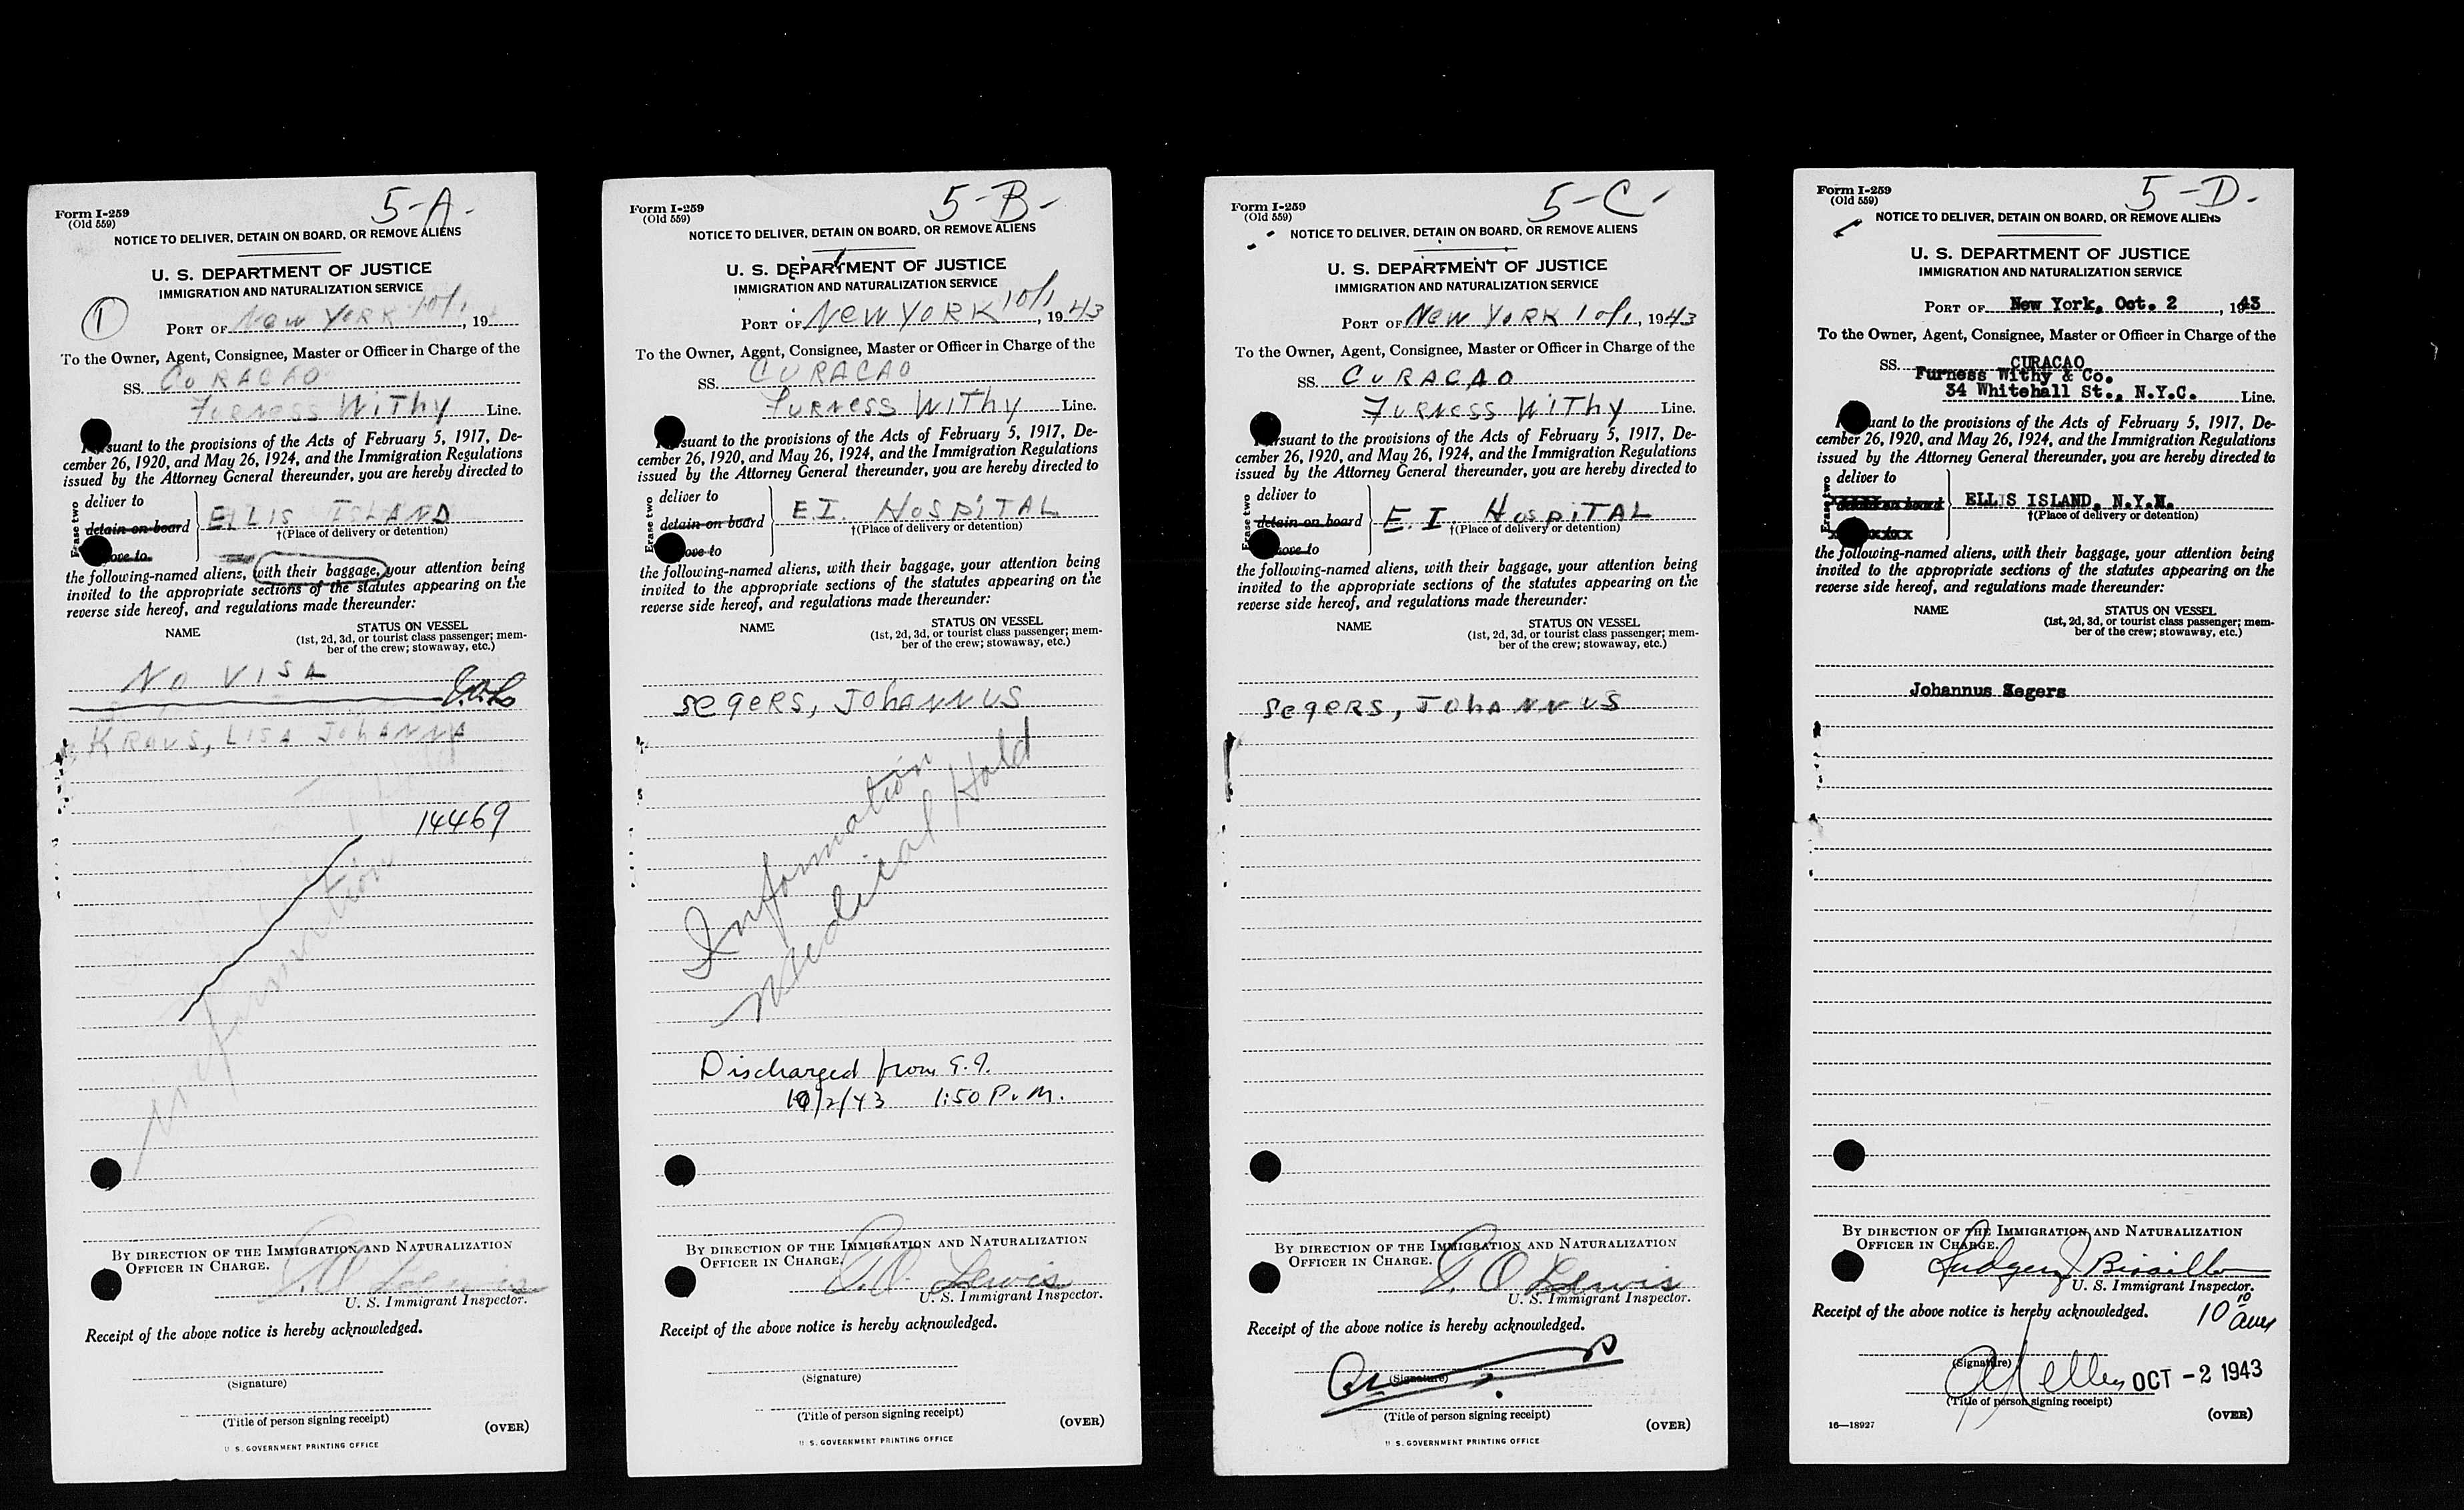 5-A-
Form I-259
(Old 559)
NOTICE TO DELIVER, DETAIN ON BOARD, OR REMOVE ALIENS
U. S. DEPARTMENT OF JUSTICE
IMMIGRATION AND NATURALIZATION SERVICE
1
PORT OF New YORK 10/1, 19
To the Owner, Agent, Consignee, Master or Officer in Charge of the
SS. CURACAO
FURNESS WITHY Line.
suant to the provisions of the Acts of February 5, 1917, De-
cember 26, 1920, and May 26, 1924, and the Immigration Regulations
issued by the Attorney General thereunder, you are hereby directed to
Erase two
deliver to
detain on board
ove to
ELLIS ISLAND
†(Place of delivery or detention)
the following-named aliens, with their baggage, your attention being
invited to the appropriate sections of the statutes appearing on the
reverse side hereof, and regulations made thereunder:
NAME
STATUS ON VESSEL
(1st, 2d, 3d, or tourist class passenger; mem-
ber of the crew; stowaway, etc.)
NO VISA
KRAUS, LISA JOHANNA
14469
Information
BY DIRECTION OF THE IMMIGRATION AND NATURALIZATION
OFFICER IN CHARGE.
Lewis
U. S. Immigrant Inspector.
Receipt of the above notice is hereby acknowledged.
(Signature)
(Title of person signing receipt)
(OVER)
U. S. GOVERNMENT PRINTING OFFICE
5-B-
Form I-259
(Old 559)
NOTICE TO DELIVER, DETAIN ON BOARD, OR REMOVE ALIENS
U. S. DEPARTMENT OF JUSTICE
IMMIGRATION AND NATURALIZATION SERVICE
PORT OF New YORK 10/1, 1943
To the Owner, Agent, Consignee, Master or Officer in Charge of the
SS. CURACAO
FURNESS WITHY Line.
suant to the provisions of the Acts of February 5, 1917, De-
cember 26, 1920, and May 26, 1924, and the Immigration Regulations
issued by the Attorney General thereunder, you are hereby directed to
Erase two
deliver to
detain on board
ove to
E.I. HOSPITAL
†(Place of delivery or detention)
the following-named aliens, with their baggage, your attention being
invited to the appropriate sections of the statutes appearing on the
reverse side hereof, and regulations made thereunder:
NAME
STATUS ON VESSEL
(1st, 2d, 3d, or tourist class passenger; mem-
ber of the crew; stowaway, etc.)
SEGERS, JOHANNUS
Information
Medical Hold
Discharged from E.I.
10/2/43 1:50 P.M.
BY DIRECTION OF THE IMMIGRATION AND NATURALIZATION
OFFICER IN CHARGE.
Lewis
U. S. Immigrant Inspector.
Receipt of the above notice is hereby acknowledged.
(Signature)
(Title of person signing receipt)
(OVER)
U. S. GOVERNMENT PRINTING OFFICE
5-C-
Form I-259
(Old 559)
NOTICE TO DELIVER, DETAIN ON BOARD, OR REMOVE ALIENS
U. S. DEPARTMENT OF JUSTICE
IMMIGRATION AND NATURALIZATION SERVICE
PORT OF New YORK 10/1, 1943
To the Owner, Agent, Consignee, Master or Officer in Charge of the
SS. CURACAO
FURNESS WITHY Line.
suant to the provisions of the Acts of February 5, 1917, De-
cember 26, 1920, and May 26, 1924, and the Immigration Regulations
issued by the Attorney General thereunder, you are hereby directed to
Erase two
deliver to
detain on board
ove to
E.I HOSPITAL
†(Place of delivery or detention)
the following-named aliens, with their baggage, your attention being
invited to the appropriate sections of the statutes appearing on the
reverse side hereof, and regulations made thereunder:
NAME
STATUS ON VESSEL
(1st, 2d, 3d, or tourist class passenger; mem-
ber of the crew; stowaway, etc.)
SEGERS, JOHANNUS
BY DIRECTION OF THE IMMIGRATION AND NATURALIZATION
OFFICER IN CHARGE.
Lewis
U. S. Immigrant Inspector.
Receipt of the above notice is hereby acknowledged.
(Signature)
(Title of person signing receipt)
(OVER)
U. S. GOVERNMENT PRINTING OFFICE
5-D-
Form I-259
(Old 559)
NOTICE TO DELIVER, DETAIN ON BOARD, OR REMOVE ALIENS
U. S. DEPARTMENT OF JUSTICE
IMMIGRATION AND NATURALIZATION SERVICE
PORT OF New York, Oct. 2, 1943
To the Owner, Agent, Consignee, Master or Officer in Charge of the
SS. CURACAO
Furness Withy & Co.
34 Whitehall St., N.Y.C. Line.
uant to the provisions of the Acts of February 5, 1917, De-
cember 26, 1920, and May 26, 1924, and the Immigration Regulations
issued by the Attorney General thereunder, you are hereby directed to
Erase two
deliver to
detain on board
ELLIS ISLAND, N.Y.H.
†(Place of delivery or detention)
the following-named aliens, with their baggage, your attention being
invited to the appropriate sections of the statutes appearing on the
reverse side hereof, and regulations made thereunder:
NAME
STATUS ON VESSEL
(1st, 2d, 3d, or tourist class passenger; mem-
ber of the crew; stowaway, etc.)
Johannus Segers
BY DIRECTION OF THE IMMIGRATION AND NATURALIZATION
OFFICER IN CHARGE.
U. S. Immigrant Inspector.
Receipt of the above notice is hereby acknowledged.
10 10 am
(Signature)
OCT -2 1943
(Title of person signing receipt)
(OVER)
16—18927